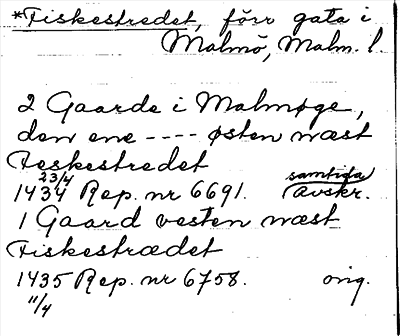 *Fiskestredet, förr gata i
Malmö, Malm. l.
2 Gaarde i Malmøge,
den ene ---- østen næst
Feskestredet
23/4 samtida
1434 Rep. nr 6691. avskr.
1 Gaard vesten næst
Fiskestrædet
1435 Rep. nr 6758. orig.
11/4